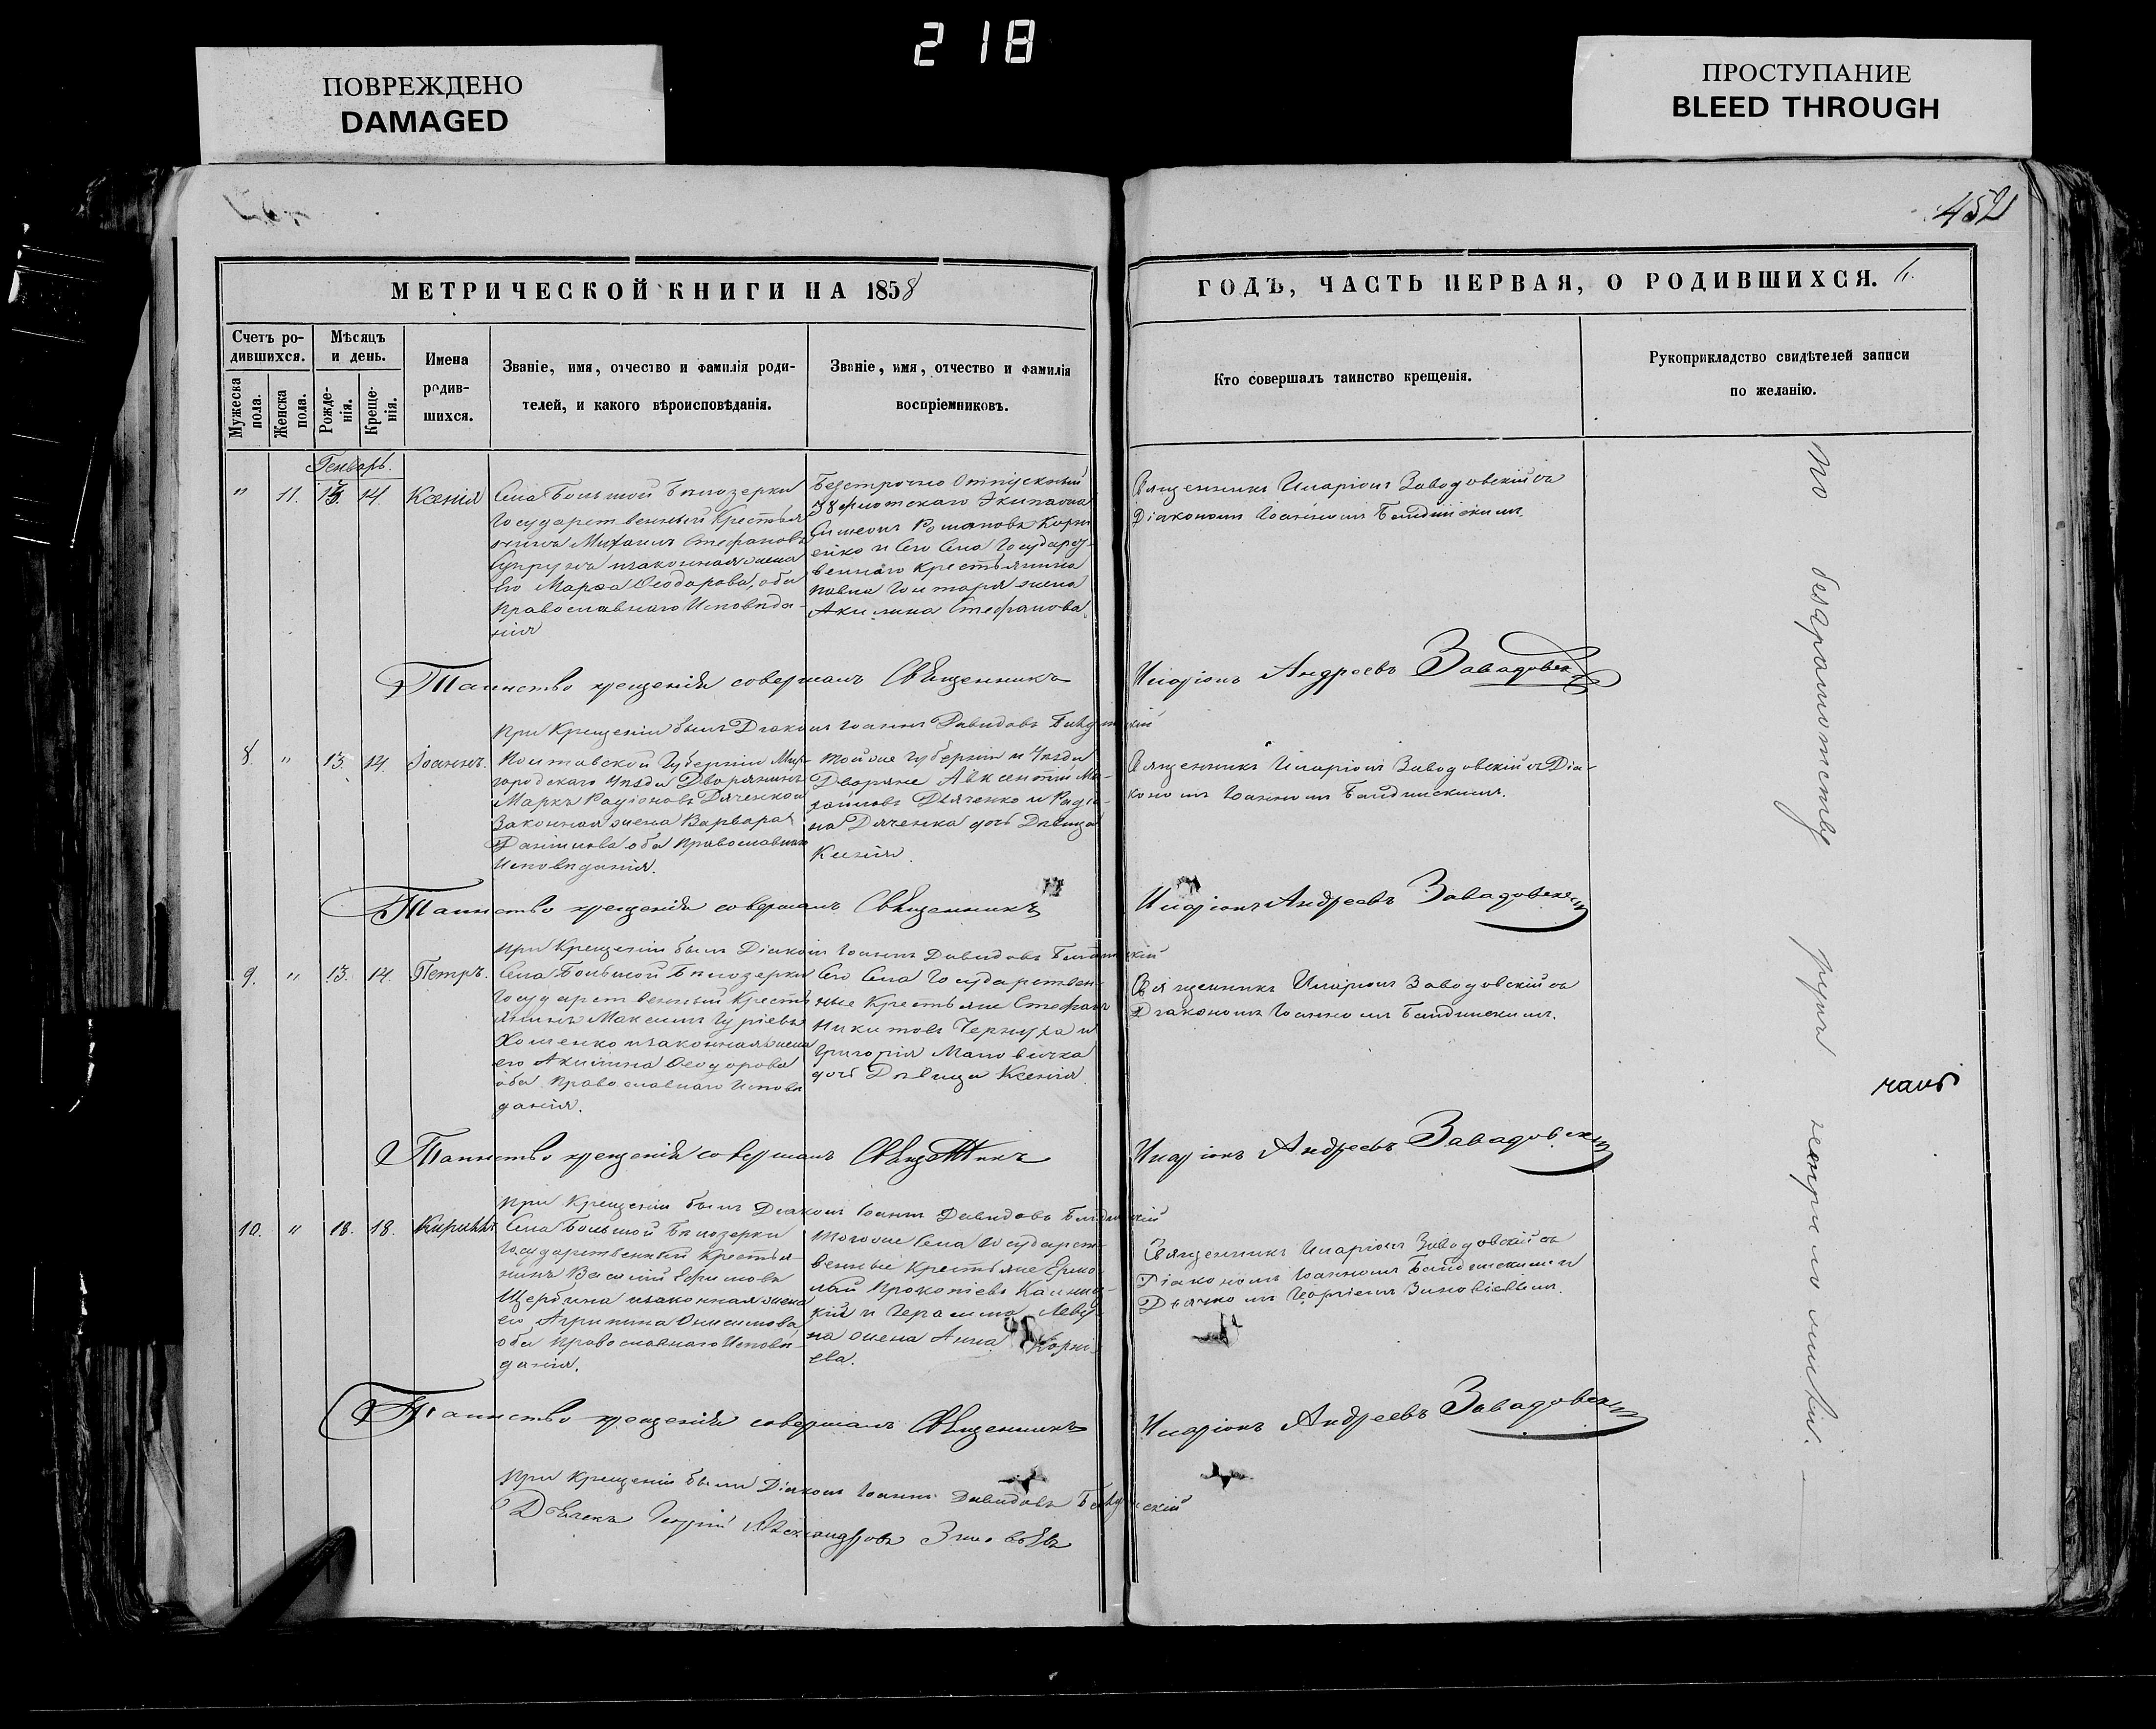 218
ПОВРЕЖДЕНО
DAMAGED
ПРОСТУПАНИЕ
BLEED THROUGH
452
МЕТРИЧЕСКОЙ КНИГИ НА 1858
Счетъ ро-
дившихся.
Мужеска
пола.
Женска
пола.
Мѣсяцъ
и день.
Рожде-
нія.
Креще-
нія.
Имена
родив-
шихся.
Званіе, имя, отчество и фамилія роди-
телей, и какого вѣроисповѣданія.
Званіе, имя, отчество и фамилія
воспріемниковъ.
ГОДЪ, ЧАСТЬ ПЕРВАЯ, О РОДИВШИХСЯ.
Кто совершалъ таинство крещенія.
Рукоприкладство свидѣтелей записи
по желанію.
Генварь.
" 11. 13. 14. Ксенія
Села Большой Бѣлозерки
Государственный Крестья
нинъ Михаилъ Стефановъ
Супрунъ и законная жена
Его Марѳа Ѳеодорова, оба
Православнаго Исповѣда-
нія
Безсрочно Отпускной
38 флотскаго Экипажа
Симеонъ Романовъ Корні
енко и Сего Села Государст
веннаго Крестьянина
Павла жена
Акилина Стефанова
Священникъ Иларіонъ Заводовскій съ
Діакономъ Іоанномъ
Таинство крещенія совершалъ Священникъ
Иларіонъ Андреевъ Завадовскій
При Крещеніи былъ Діаконъ Іоаннъ Давидовъ
8. " 13. 14. Іоаннъ.
Полтавской Губерніи Мир-
городскаго Уѣзда Дворянинъ
Маркъ Радіоновъ Дяченко и
Законная жена Варвара
Даніилова оба Православнаго
Исповѣданія.
Той же Губерніи и Уѣзда
Дворяне Авксентій Ми-
хайловъ Дьяченко и Радіо-
на Дяченка дочь Дѣвица
Ксенія.
Священникъ Иларіонъ Заводовскій съ Діа-
кономъ Іоанномъ
Таинство крещенія совершалъ Священникъ
Иларіонъ Андреевъ Завадовскій
При Крещеніи былъ Діаконъ Іоаннъ Давидовъ
9. " 13. 14. Петръ.
Села Большой Бѣлозерки
Государственный Кресть
янинъ Максимъ Гуріевъ
Хоменко и законная жена
его Акилина Ѳеодорова
оба Православнаго Исповѣ
данія.
Сего Села Государствен-
ные Крестьяне Стефанъ
Никитовъ Чернуха и
Григорія
дочь Дѣвица Ксенія.
Священникъ Иларіонъ Заводовскій съ
Діакономъ Іоанномъ
Таинство крещенія совершалъ Священникъ
Иларіонъ Андреевъ Завадовскій
При Крещеніи былъ Діаконъ Іоаннъ Давидовъ
10. " 18. 18. Кириллъ
Села Большой Бѣлозерки
Государственный Крестья-
нинъ Василій Ефимовъ
Щербина и законная жена
его Агрипина Онисимова,
оба Православнаго Исповѣ-
данія.
Тогоже Села Государст-
венные Крестьяне Ермо-
лай Прокопіевъ
и Герасима
жена Анна Корні-
ева.
Священникъ Иларіонъ Заводовскій съ
Діакономъ Іоанномъ
Дьячкомъ Георгіемъ Зиновіевымъ.
Таинство крещенія совершалъ Священникъ
Иларіонъ Андреевъ Завадовскій
При Крещеніи были Діаконъ Іоаннъ Давидовъ
Дьячекъ Георгій Александровъ Зиновьевъ
По безграмотству рукъ неприложили.